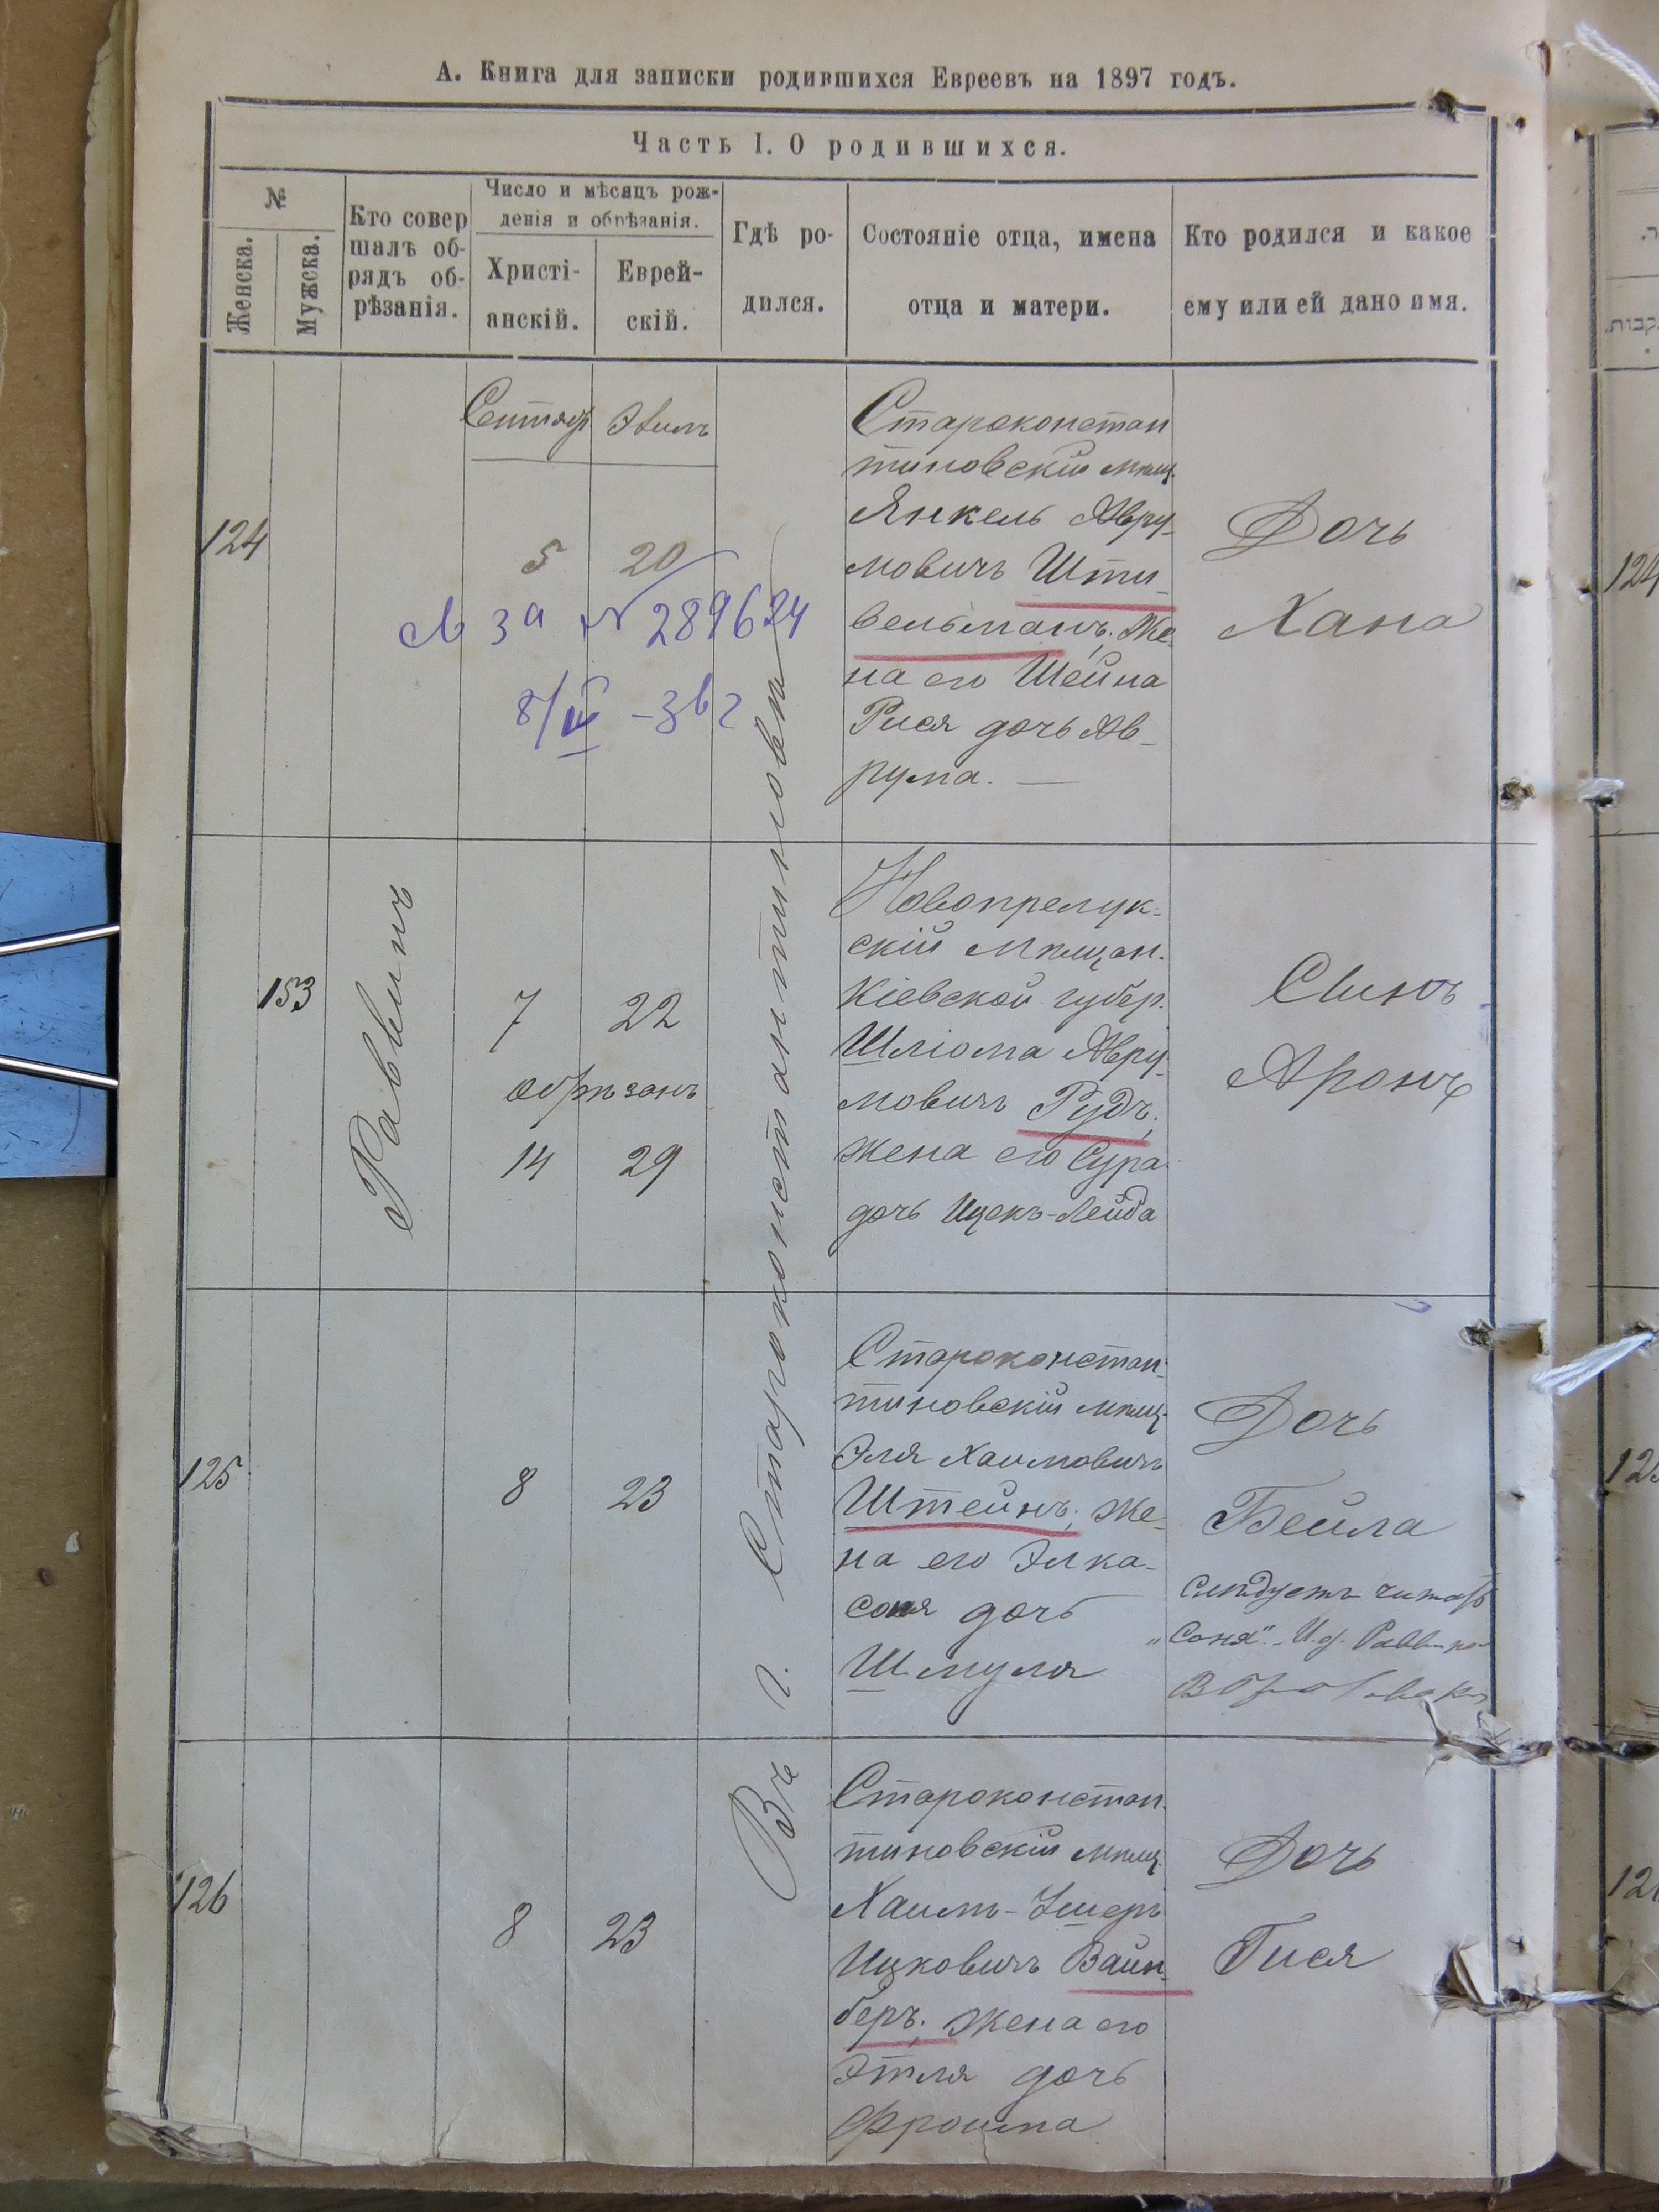 А. Книга для записки родившихся Евреевъ на 1897 годъ.
Часть I. О родившихся.
№
Женска.
Мужска.
Кто совер
шалъ об-
рядъ об-
рѣзанія.
Число и мѣсяцъ рож-
денія и обрѣзанія.
Христі-
анскій.
Еврей-
скій.
Гдѣ ро-
дился.
Состояніе отца, имена
отца и матери.
Кто родился и какое
ему или ей дано имя.
Сентябр Элилъ
124
5 20
№ 289624
8/VI - 36 г
Староконстан
тиновскій мѣщ.
Янкель Авру-
мовичъ Шти-
вельманъ, Же-
на его Шейна
Рися дочь Ав-
рума. —
Дочь
Хана
Раввинъ
Въ г. Староконстантиновѣ
153
7 22
обрѣзанъ
14 29
Новопрелук-
скій мѣщан.
Кіевской губер.
Шліома Авру-
мовичъ Рудъ,
жена его Сура
дочь Ицекъ-Лейба
Сынъ
Аронъ
125
8 23
Староконстан-
тиновскій мѣщ.
Эля Хаимовичъ
Штейнъ, Же-
на его Элка-
соня дочь
Шмуля
Дочь
Бейла
Слѣдуетъ читать
„Соня". И.д. Раввина
126
8 23
Староконстан.
тиновскій мѣщ.
Хаимъ-Ушеръ
Ицковичъ Вайн-
беръ, жена его
Этля дочь
Фроима
Дочь
Гися
124